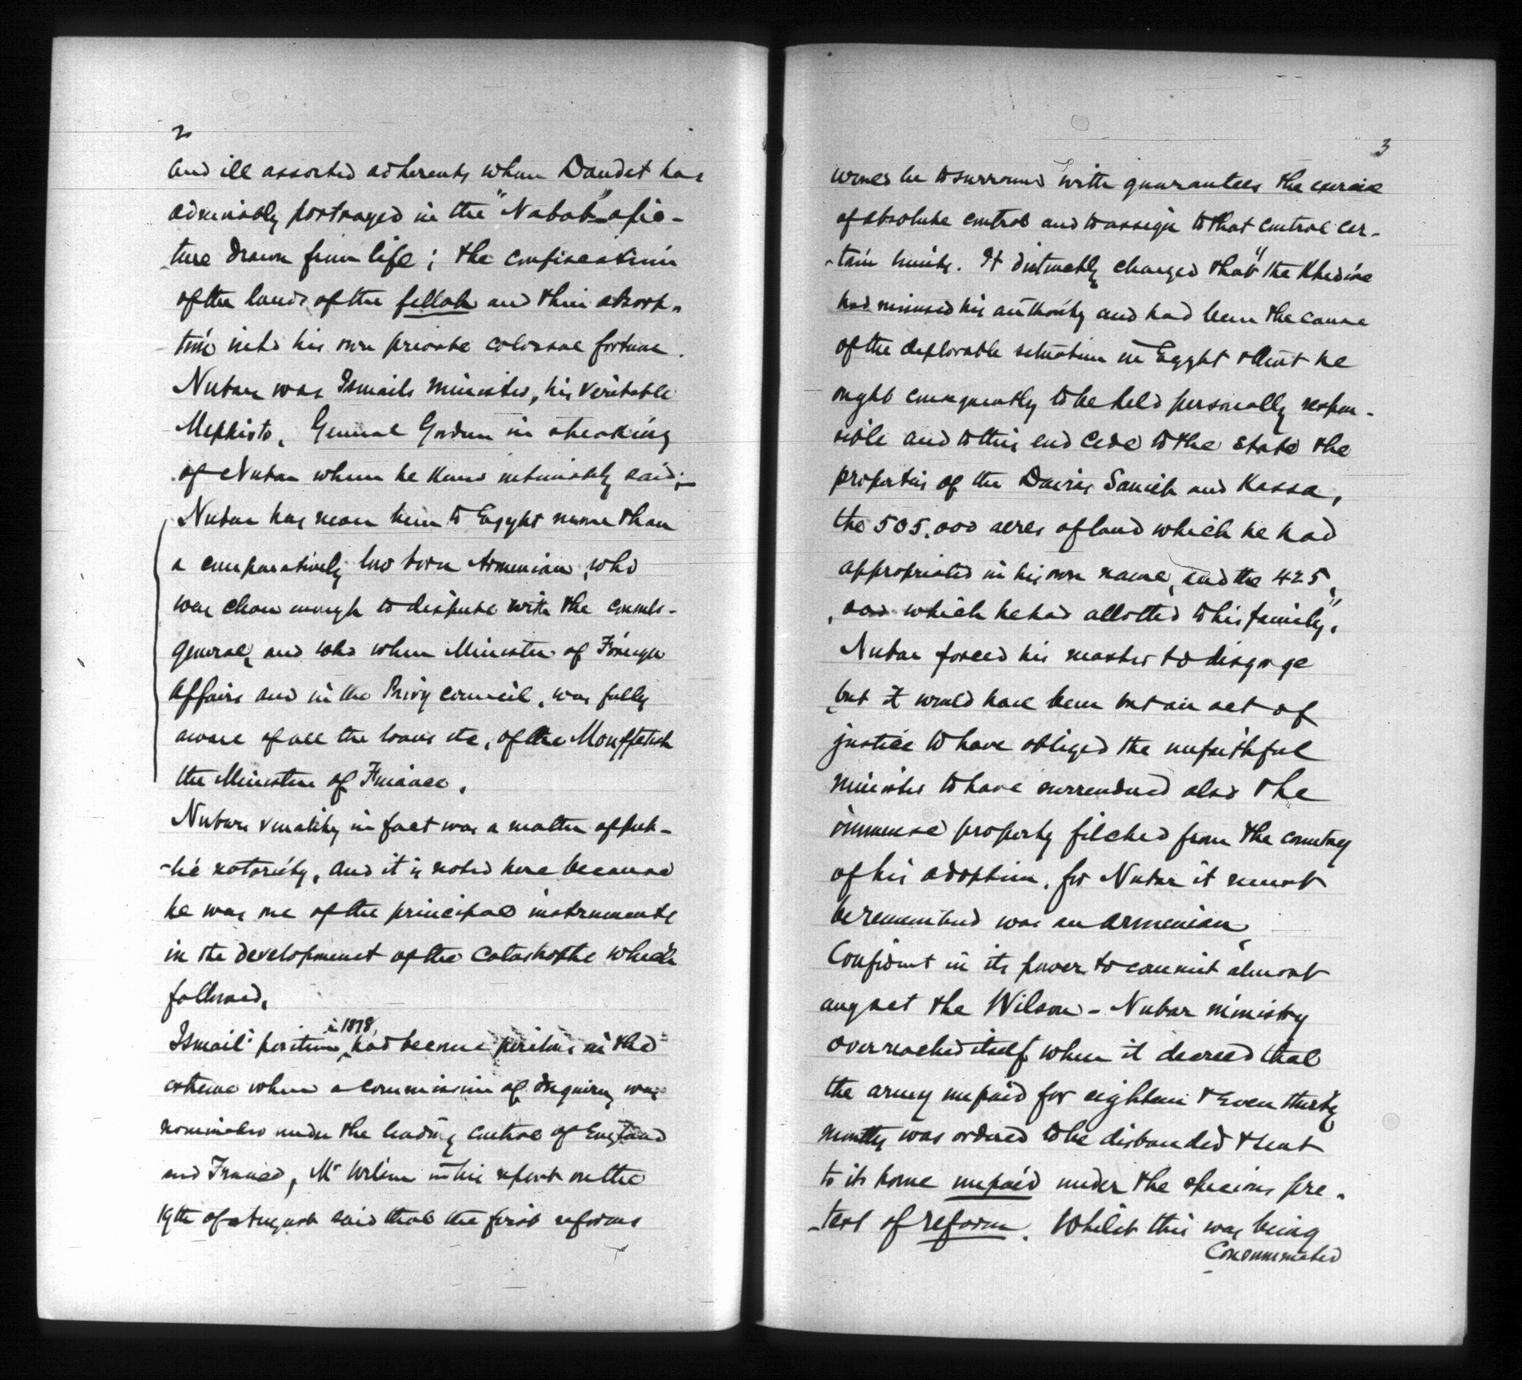 2
and ill assorted adherents whom Daudet has
admirably portrayed in the "Nabob" a pic-
-ture drawn from life; the confiscation
of the lands of the fellah and their absorp-
-tion into his own private colossal fortune.
Nubar was Ismails minister, his veritable
Mephisto. General Gordon in speaking
of Nubar whom he knew intimately said;
Nubar has never been to Egypt more than
a comparatively low born Armenian, who
was clever enough to dispute with the consuls-
general, and who when Minister of Foreign
affairs and in the Privy council, was fully
aware of all the loans etc, of the Mouffetish
the Minister of Finance.
Nubars venality in fact was a matter of pub-
-lic notoriety, and it is noted here because
he was one of the principal instruments
in the development of the catastrophe which
followed.
Ismail' position in 1878, had become perilous in the
extreme when a commission of Inquiry was
nominated under the leading control of England
and France, Mr Wilson in his report on the
19th of August said that the first reforms
3
would be to surround with guarantees the exercise
of absolute control and to assign to that control cer-
-tain limits. It distinctly charged that "the Khedive
had misused his authority and had been the cause
of the deplorable situation in Egypt & that he
ought consequently to be held personally respon-
sible and to this end cede to the state the
properties of the Dairas Sanieh and Kassa,
the 505.000 acres of land which he had
appropriated in his own name, and the 425,
,000 which he had allotted to his family".
Nubar forced his master to disgorge
but it would have been but an act of
justice to have obliged the unfaithful
minister to have surrendered also the
immense property filched from the country
of his adoption, for Nubar it must
be remembered was an Armenian.
Confident in its power to commit almost
any act the Wilson - Nubar ministry
overreached itself when it decreed that
the army unpaid for eighteen & even thirty
months was ordered to be disbanded & sent
to its home unpaid under the specious pre-
-text of reform. Whilst this was being
Consummated